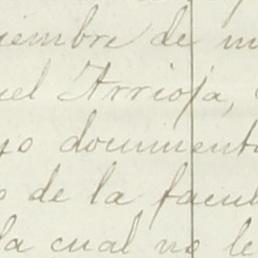 iembre de m
uel Arrioja,
yo document
o de la facul
la cual no le